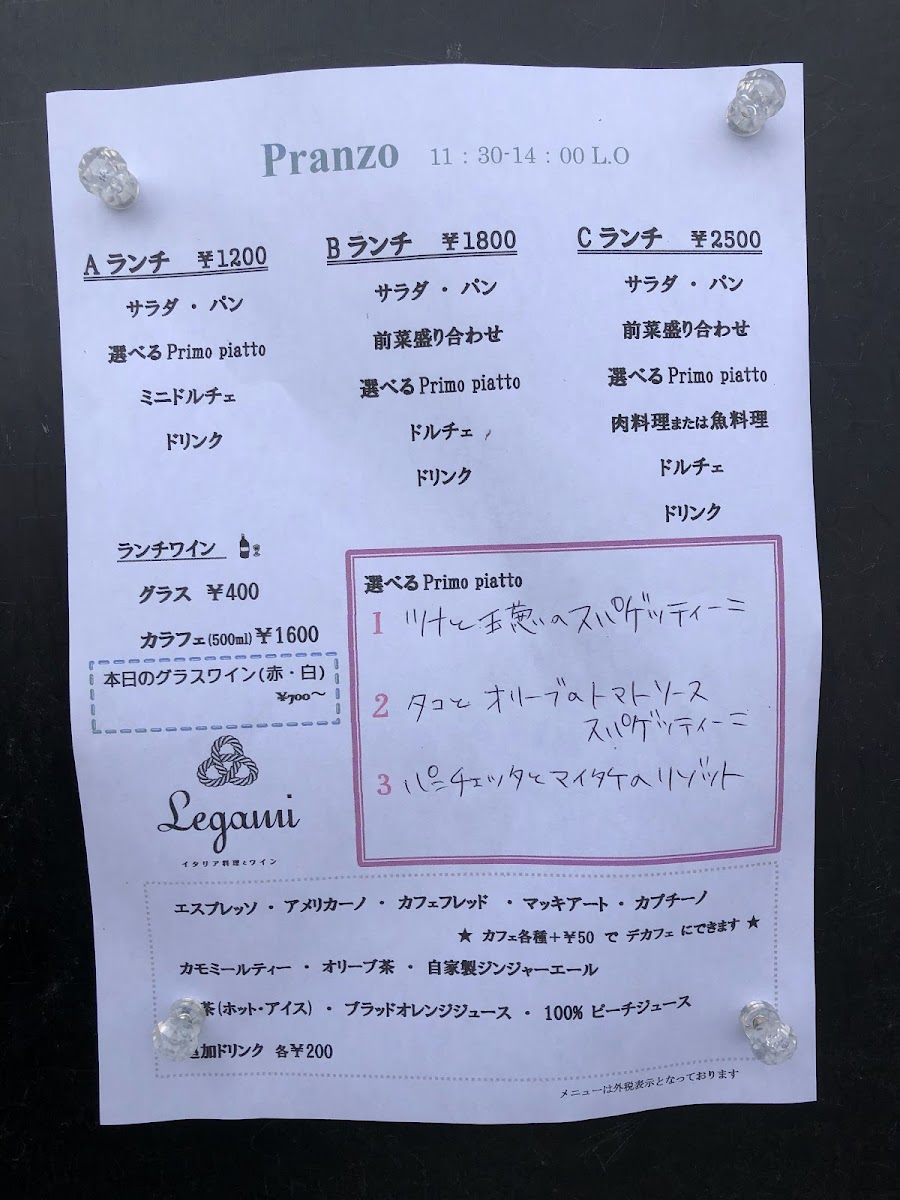 Pranzo 11：30-14：00 L.O
Aランチ ￥1200
サラダ・パン
選べるPrimo piatto
ミニドルチェ
ドリンク
Bランチ ￥1800
サラダ・パン
前菜盛り合わせ
選べるPrimo piatto
ドルチェ
ドリンク
Cランチ ￥2500
サラダ・パン
選べるPrimo piatto
肉料理または魚料理
ドルチェ
ドリンク
ランチワイン
グラス ￥400
カラフェ(500ml)￥1600
本日のグラスワイン(赤・白)
￥700～
Legami
イタリア料理とワイン
選べるPrimo piatto
1 ツナと玉葱のスパゲッティーニ
2 タコとオリーブのトマトソース
スパゲッティーニ
3 パンチェッタとマイタケのリゾット
エスプレッソ・アメリカーノ・カフェフレッド・マッキアート・カプチーノ
★ カフェ各種＋￥50 で デカフェ にできます ★
カモミールティー・オリーブ茶・自家製ジンジャーエール
茶(ホット・アイス)・ブラッドオレンジジュース・100% ピーチジュース
加ドリンク 各￥200
メニューは外税表示となっております